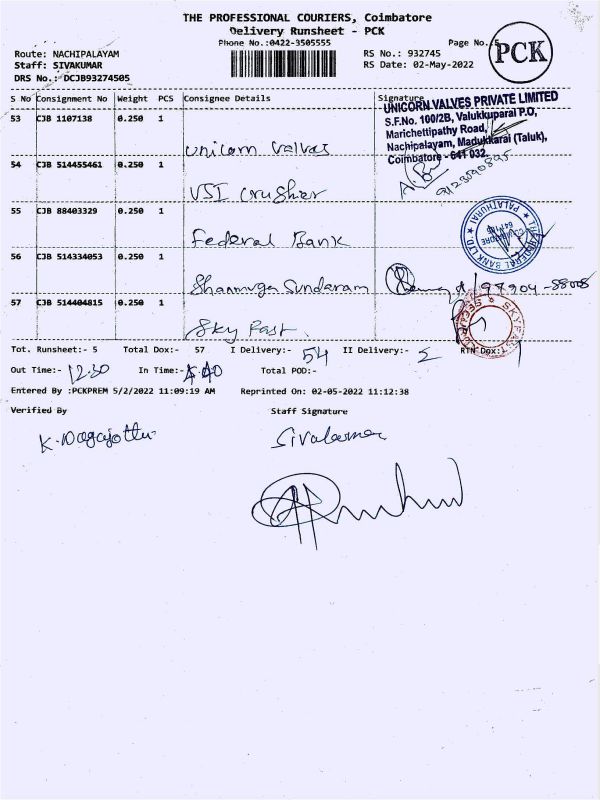 THE PROFESSIONAL COURIERS, Coimbatore
Delivery Runsheet - PCK
Phone No.:0422-3505555
Page No. 5
PCK
Route: NACHIPALAYAM
RS No.: 932745
Staff: SIVAKUMAR
RS Date: 02-May-2022
DRS No.: DCJB93274505
S No Consignment No Weight PCS Consignee Details Signature
UNICORN VALVES PRIVATE LIMITED
S.F.No. 100/2B, Valukkuparai P.O,
Marichettipathy Road,
Nachipalayam, Madukkarai (Taluk),
Coimbatore - 641 032.
53 CJB 1107138 0.250 1
Unicorn Valves
54 CJB 514455461 0.250 1
VSI Crusher
55 CJB 88403329 0.250 1
Federal Bank
THE FEDERAL BANK LTD. PALATHURAI
56 CJB 514334053 0.250 1
Shanmuga Sundaram
57 CJB 514404815 0.250 1
Sky Fast
Tot. Runsheet:- 5 Total Dox:- 57 I Delivery:- 54 II Delivery:- 2 RTN Dox:- 1
Out Time:- 12.30 In Time:- Total POD:-
Entered By :PCKPREM 5/2/2022 11:09:19 AM Reprinted On: 02-05-2022 11:12:38
Verified By Staff Signature